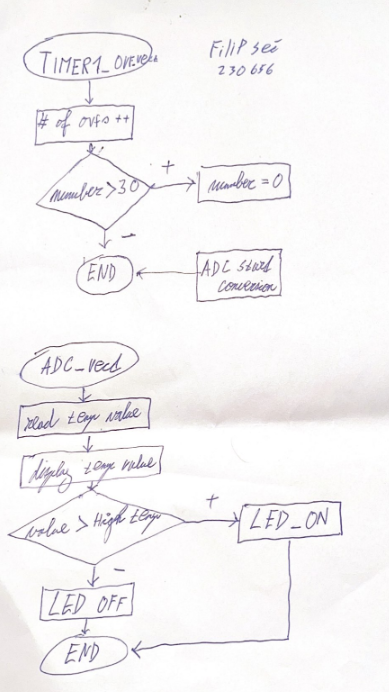 TIMER1_OVF_vect
Filip Seč
230656
# of ovfs ++
number > 30
+
number = 0
-
END
ADC start
conversion
ADC_vect
read temp value
display temp value
value > High temp
+
LED_ON
-
LED OFF
END